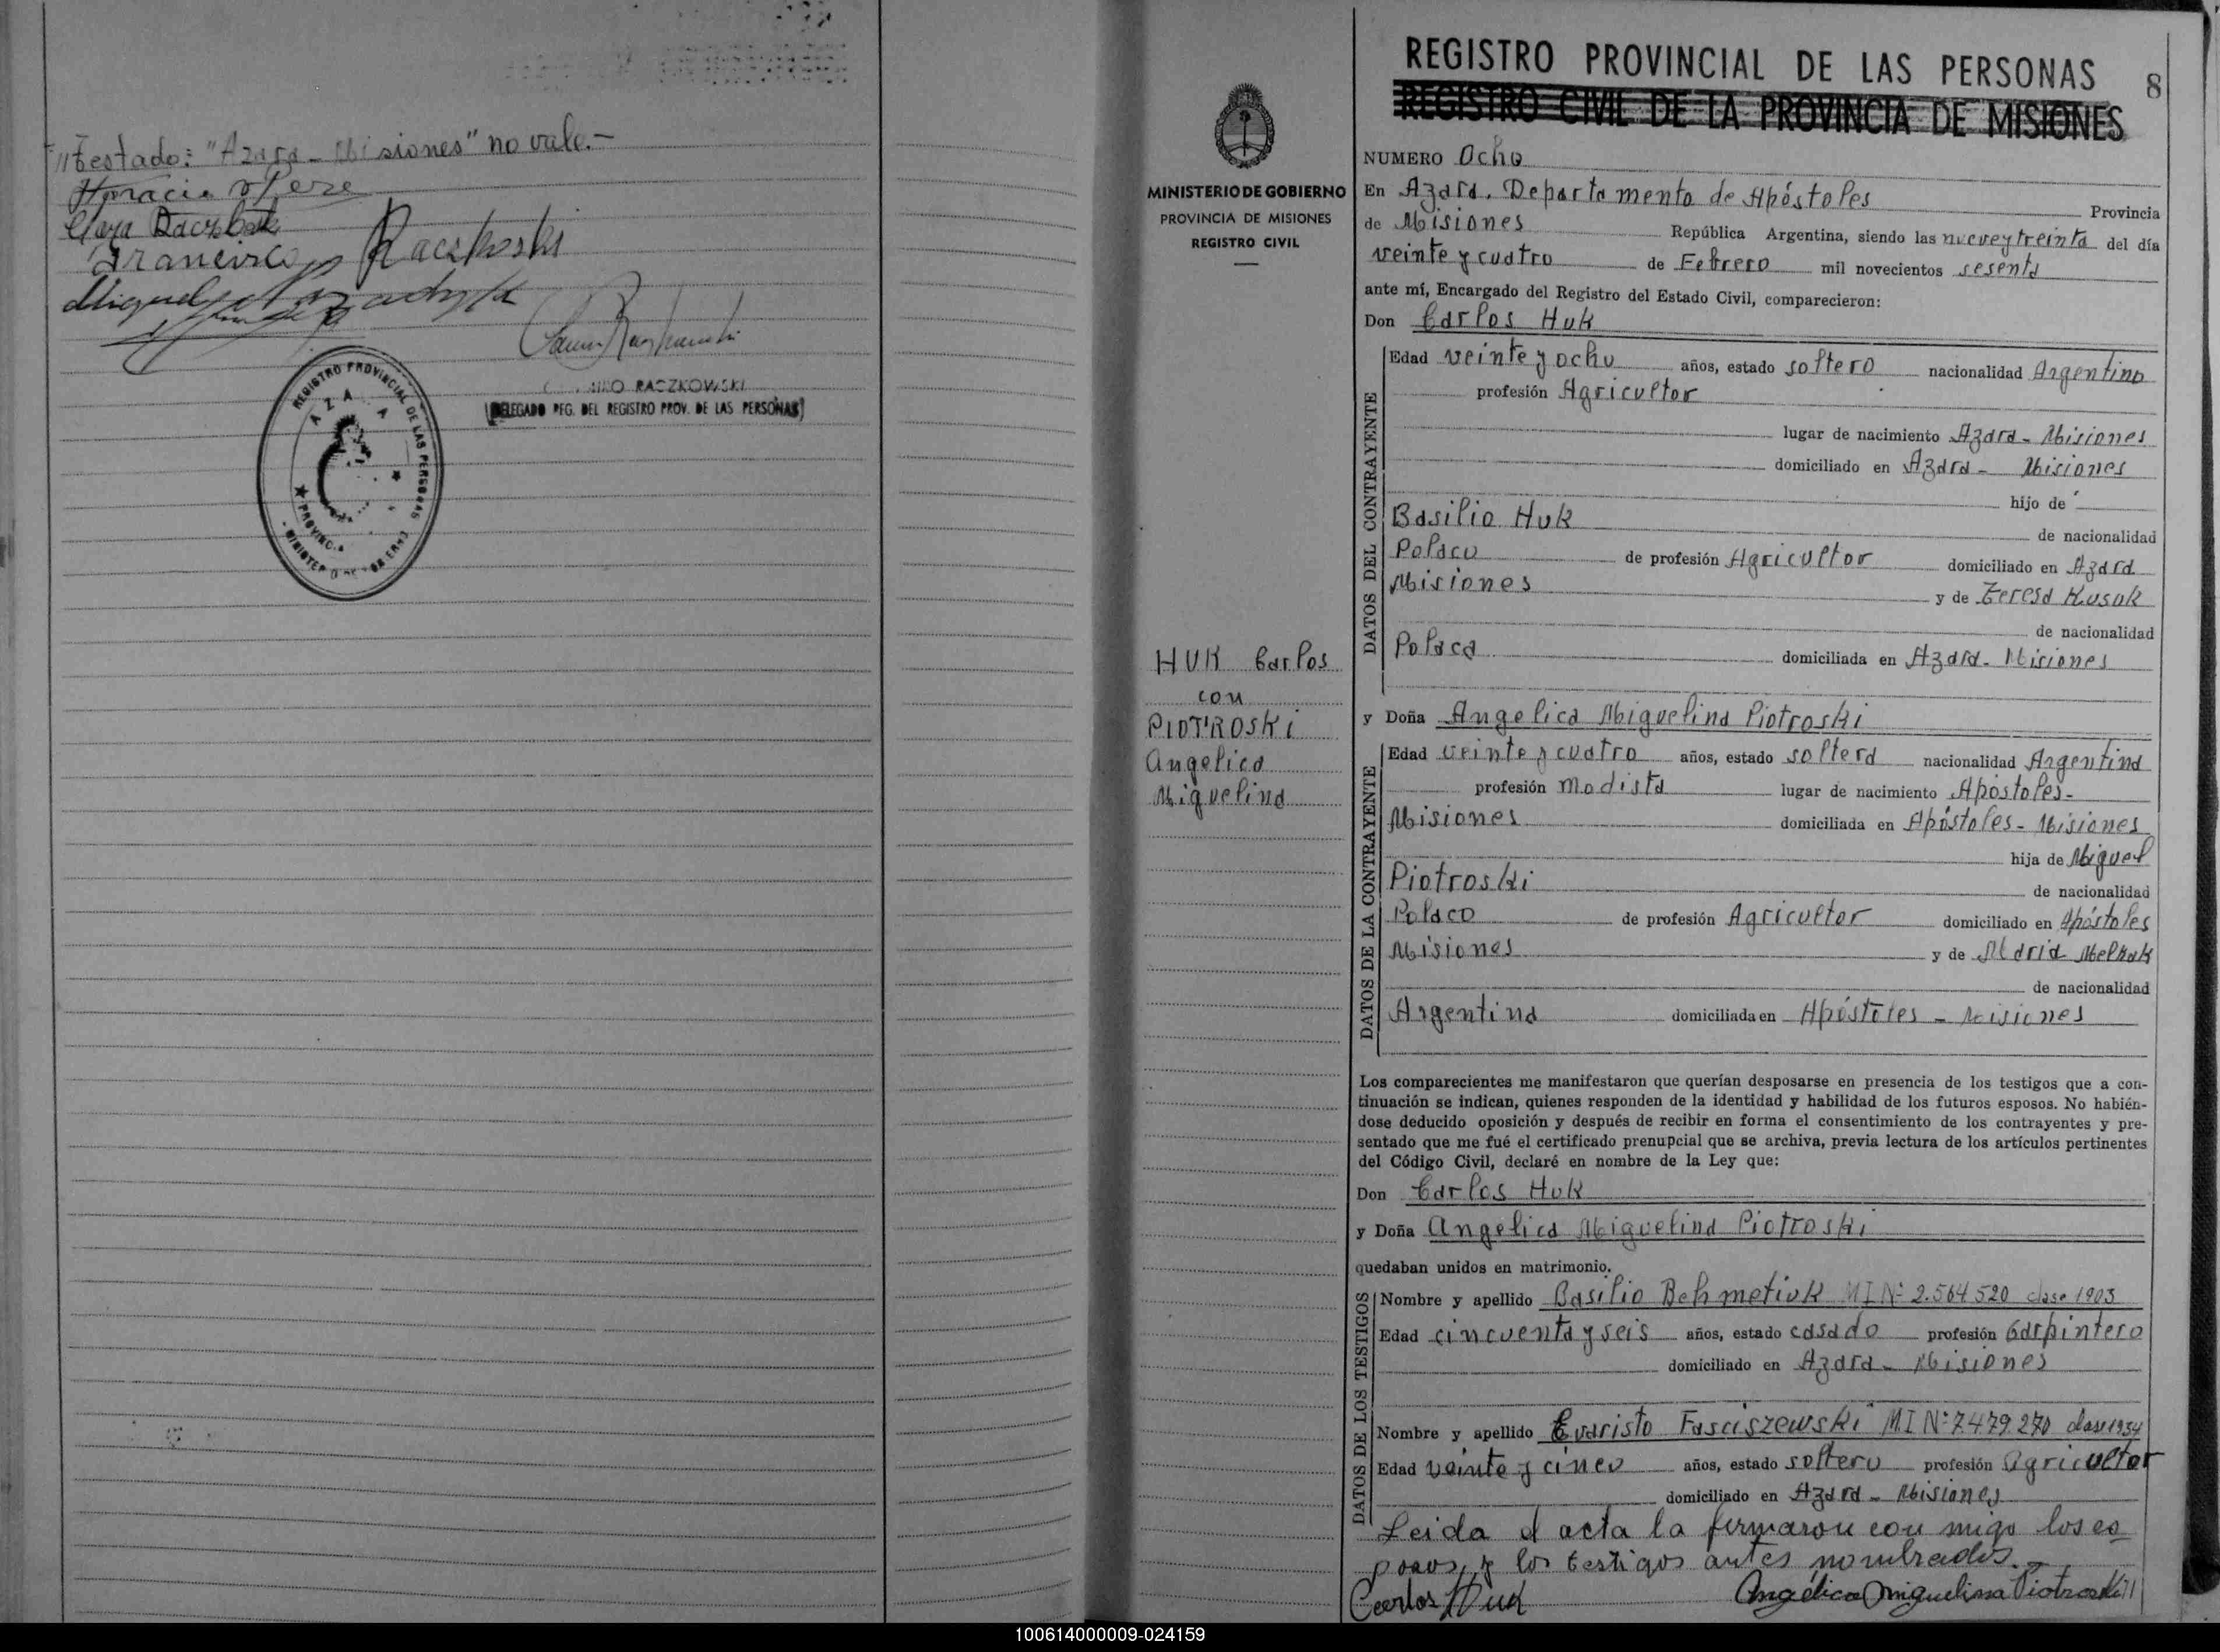 "Testado: "Azara - Misiones" no vale.-
Horacio
Clara
Francisco Raczkoski
Miguel
RACZKOWSKI
DELEGADO REG. DEL REGISTRO PROV. DE LAS PERSONAS
REGISTRO PROVINCIAL DE LAS PERSONAS
MINISTERIO DE GOBIERNO
PROVINCIA DE MISIONES
REGISTRO CIVIL
HUK Carlos
con
PIOTROSKI
Angelica
Miguelina
REGISTRO PROVINCIAL DE LAS PERSONAS 8
REGISTRO CIVIL DE LA PROVINCIA DE MISIONES
NUMERO Ocho
En Azara. Departamento de Apóstoles Provincia
de Misiones República Argentina, siendo las nueve y treinta del día
veinte y cuatro de Febrero mil novecientos sesenta
ante mí, Encargado del Registro del Estado Civil, comparecieron:
Don Carlos Huk
DATOS DEL CONTRAYENTE
Edad veinte y ocho años, estado soltero nacionalidad Argentino
profesión Agricultor
lugar de nacimiento Azara - Misiones
domiciliado en Azara - Misiones
hijo de
Basilio Huk
de nacionalidad
Polaco de profesión Agricultor domiciliado en Azara
Misiones y de Teresa Kusak
de nacionalidad
Polaca domiciliada en Azara - Misiones
y Doña Angelica Miguelina Piotroski
DATOS DE LA CONTRAYENTE
Edad veinte y cuatro años, estado soltera nacionalidad Argentina
profesión Modista lugar de nacimiento Apóstoles -
Misiones domiciliada en Apóstoles - Misiones
hija de Miguel
Piotroski de nacionalidad
Polaco de profesión Agricultor domiciliado en Apóstoles
Misiones y de Maria Melnak
de nacionalidad
Argentina domiciliada en Apóstoles - Misiones
Los comparecientes me manifestaron que querían desposarse en presencia de los testigos que a con-
tinuación se indican, quienes responden de la identidad y habilidad de los futuros esposos. No habién-
dose deducido oposición y después de recibir en forma el consentimiento de los contrayentes y pre-
sentado que me fué el certificado prenupcial que se archiva, previa lectura de los artículos pertinentes
del Código Civil, declaré en nombre de la Ley que:
Don Carlos Huk
y Doña Angelica Miguelina Piotroski
quedaban unidos en matrimonio.
DATOS DE LOS TESTIGOS
Nombre y apellido Basilio Behmetiuk MI Nº 2.564.520 clase 1903
Edad cincuenta y seis años, estado casado profesión Carpintero
domiciliado en Azara - Misiones
Nombre y apellido Evaristo Fasciszewski M.I Nº 7.479.270 clase 1934
Edad veinte y cinco años, estado soltero profesión Agricultor
domiciliado en Azara - Misiones
Leida el acta la firmaron con migo los es
posos, y los testigos antes nombrados.-
Carlos Huk Angélica Miguelina Piotroski
100614000009-024159